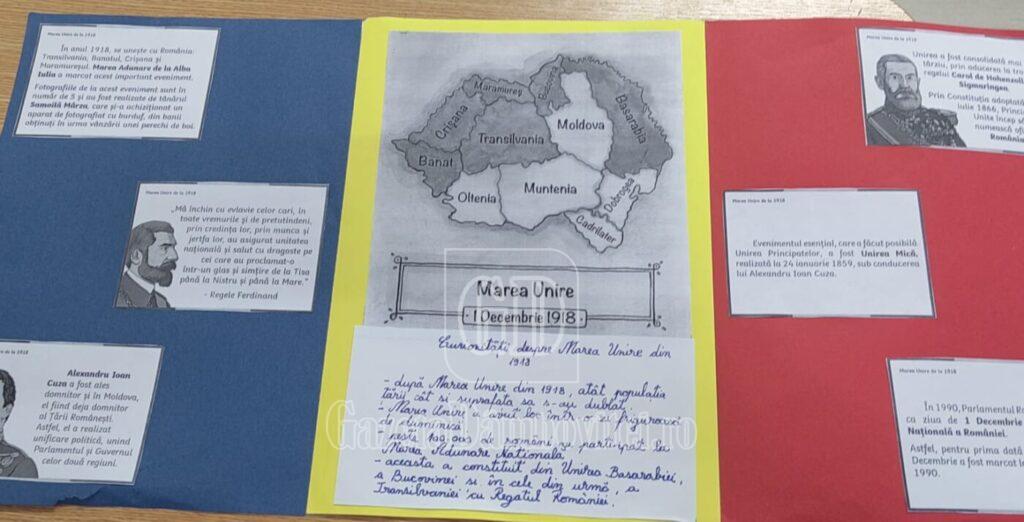 Marea Unire de la 1918
În anul 1918, se unește cu România:
Transilvania, Banatul, Crișana și
Maramureșul. Marea Adunare de la Alba
Iulia a marcat acest important eveniment.
Fotografiile de la acest eveniment sunt în
număr de 5 și au fost realizate de tânărul
Samoilă Mârza, care și-a achiziționat un
aparat de fotografiat cu burduf, din banii
obținuți în urma vânzării unei perechi de boi.
Marea Unire de la 1918
„Mă închin cu evlavie celor cari, în
toate vremurile și de pretutindeni,
prin credința lor, prin munca și
jertfa lor, au asigurat unitatea
națională și salut cu dragoste pe
cei care au proclamat-o
într-un glas și simțire de la Tisa
până la Nistru și până la Mare."
- Regele Ferdinand
de la 1918
Alexandru Ioan
Cuza a fost ales
domnitor și în Moldova,
el fiind deja domnitor
al Țării Românești.
Astfel, el a realizat
unificare politică, unind
Parlamentul și Guvernul
celor două regiuni.
Maramureș
Bucovina
Crișana
Transilvania
Moldova
Basarabia
Banat
Oltenia
Muntenia
Dobrogea
Cadrilater
Marea Unire
· 1 Decembrie 1918 ·
Curiozități despre Marea Unire din
1918
- după Marea Unire din 1918, atât populația
țării cât si suprafața sa s-au dublat.
- Marea Unire a avut loc într-o zi friguroasă
de duminică
- peste 100.000 de români au participat la
Marea Adunare Națională
- aceasta a constituit din Unirea Basarabiei,
a Bucovinei si în cele din urmă, a
Transilvaniei cu Regatul României.
Marea Unire de la 1918
Unirea a fost consolidată mai
târziu, prin aducerea la tro
regelui Carol de Hohenzol
Sigmaringen.
Prin Constituția adoptată
iulie 1866, Princip
Unite încep să
numească ofi
România
Marea Unire de la 1918
Evenimentul esențial, care a făcut posibilă
Unirea Principatelor, a fost Unirea Mică,
realizată la 24 ianuarie 1859, sub conducerea
lui Alexandru Ioan Cuza.
Marea Unire de la 1918
În 1990, Parlamentul Ro
ca ziua de 1 Decembrie
Națională a României.
Astfel, pentru prima dată
Decembrie a fost marcat la
1990.